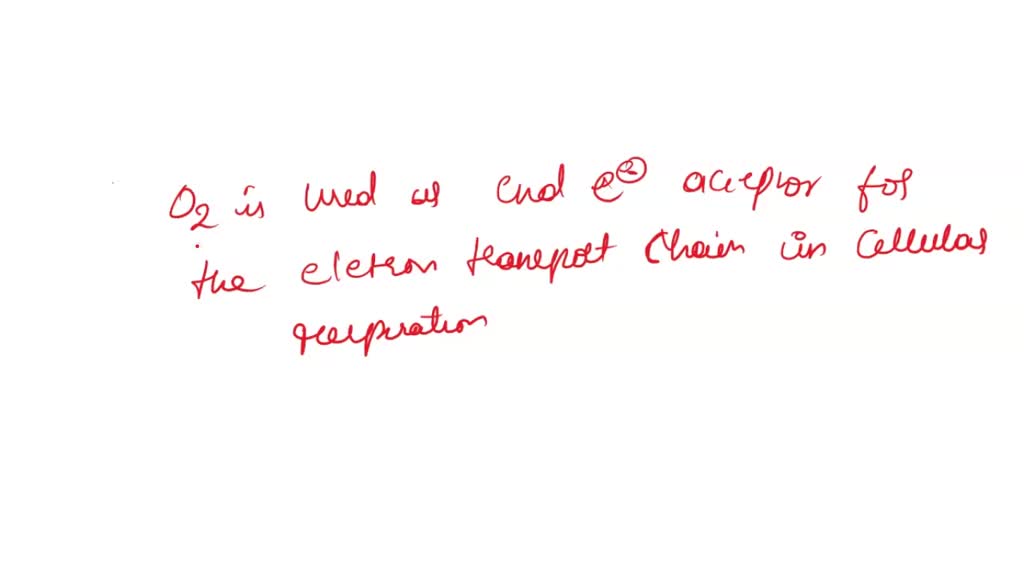 O₂ is used as end e⊖ aceptor for
the eletron transport chain in cellular
respiration